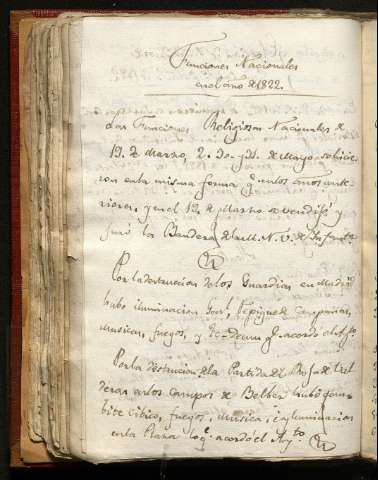 Funciones Nacionales
en el año d 1822.
Las Funciones Religiosas Nacionales d
19. d Marzo, 2. 30. y 31. d Mayo se hicie
ron en la misma forma q. en los años ante
riores, y en el 19 d Marzo se vendijo y
juró la Bandera d la M. N. V. d Infant.a
Por la destruccion de los Guardias en Madrid
hubo iluminacion Gen.l, repique d Campanas,
musicas, fuegos, y Te-deum q. acordó el Ay.to
Por la destruccion d la Partida del
en los campos de hubo
bite Civico, fuegos, musica, é iluminacion
en la Plaza lo q. acordó el Ay.to